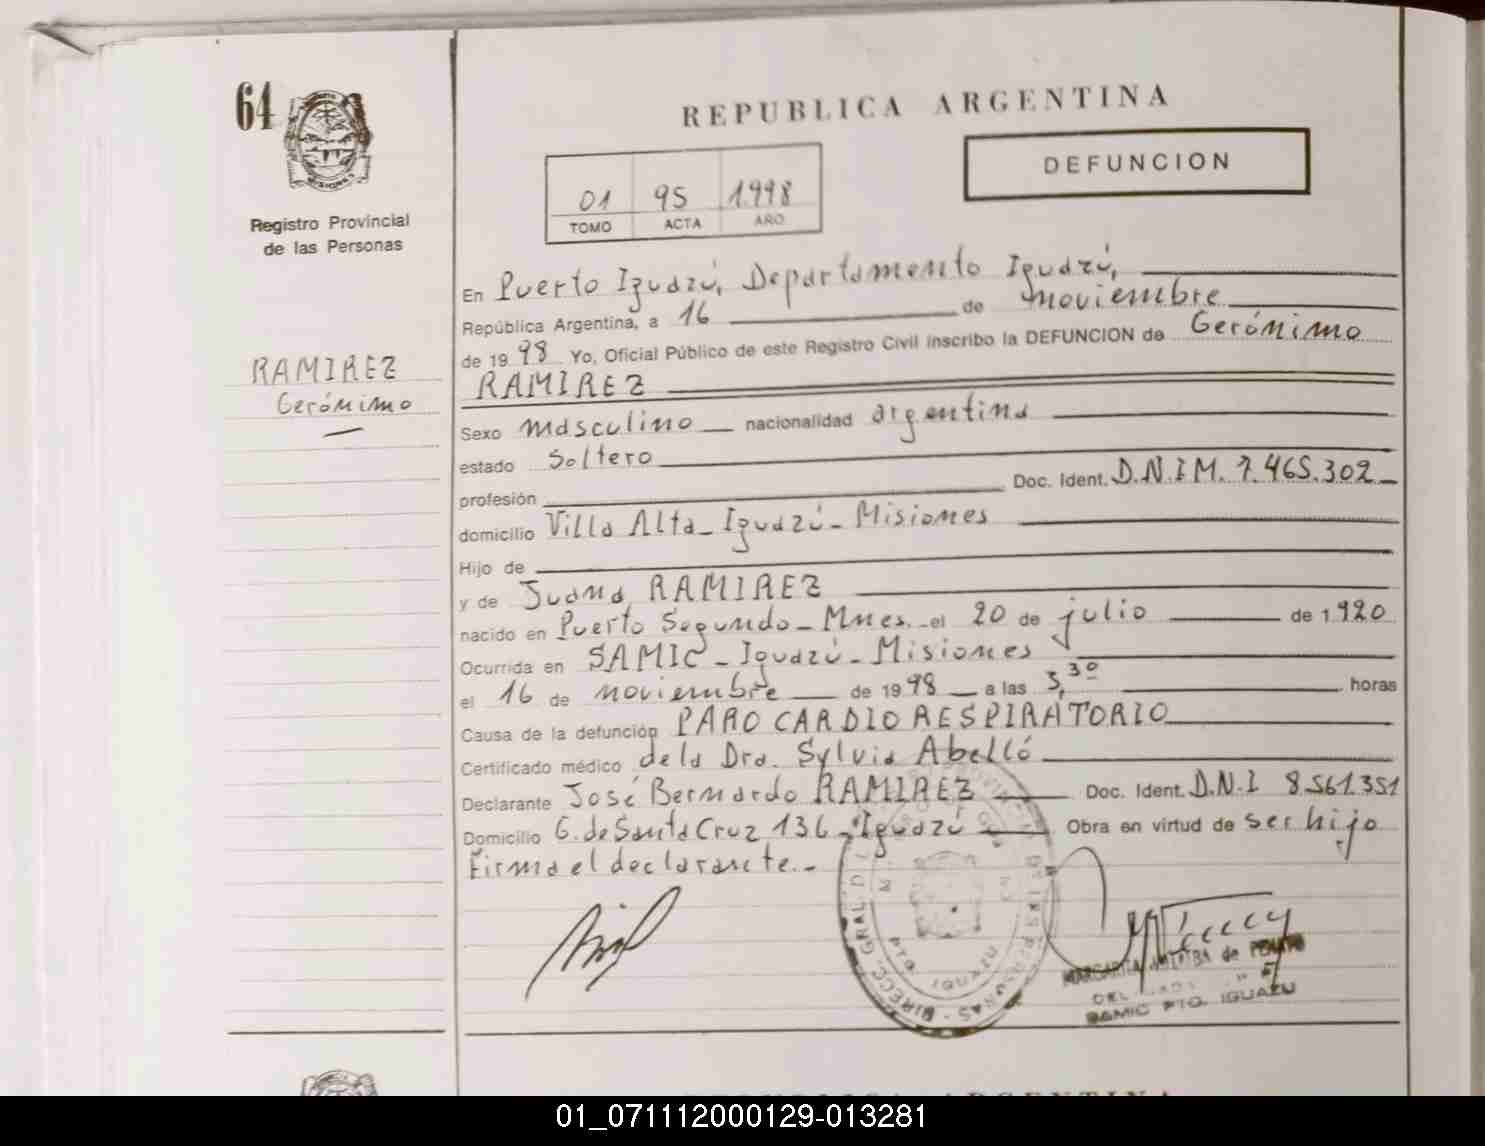 64
MISIONES
Registro Provincial
de las Personas
RAMIREZ
Gerónimo
REPUBLICA ARGENTINA
DEFUNCION
01 95 1.998
TOMO ACTA AÑO
En Puerto Iguazú, Departamento Iguazú,
República Argentina, a 16 de noviembre
de 19 98 Yo, Oficial Público de este Registro Civil inscribo la DEFUNCION de Gerónimo
RAMIREZ
Sexo masculino nacionalidad argentina
estado soltero
profesión Doc. Ident. D.N.I M. 7.465.302
domicilio Villa Alta - Iguazú - Misiones
Hijo de
y de Juana RAMIREZ
nacido en Puerto Segundo - Mnes. - el 20 de julio de 1 920
Ocurrida en SAMIC - Iguazú - Misiones
el 16 de noviembre de 19 98 a las 3,30 horas
Causa de la defunción PARO CARDIO RESPIRATORIO
Certificado médico de la Dra. Sylvia Abelló
Declarante José Bernardo RAMIREZ Doc. Ident. D.N.I 8.561.351
Domicilio G. de Santa Cruz 136 - Iguazú Obra en virtud de ser hijo
Firma el declarante.-
DIRECC. GRAL. D PERSONAS
PTO. IGUAZU
MARGARITA de
SAMIC PTO. IGUAZU
01_071112000129-013281